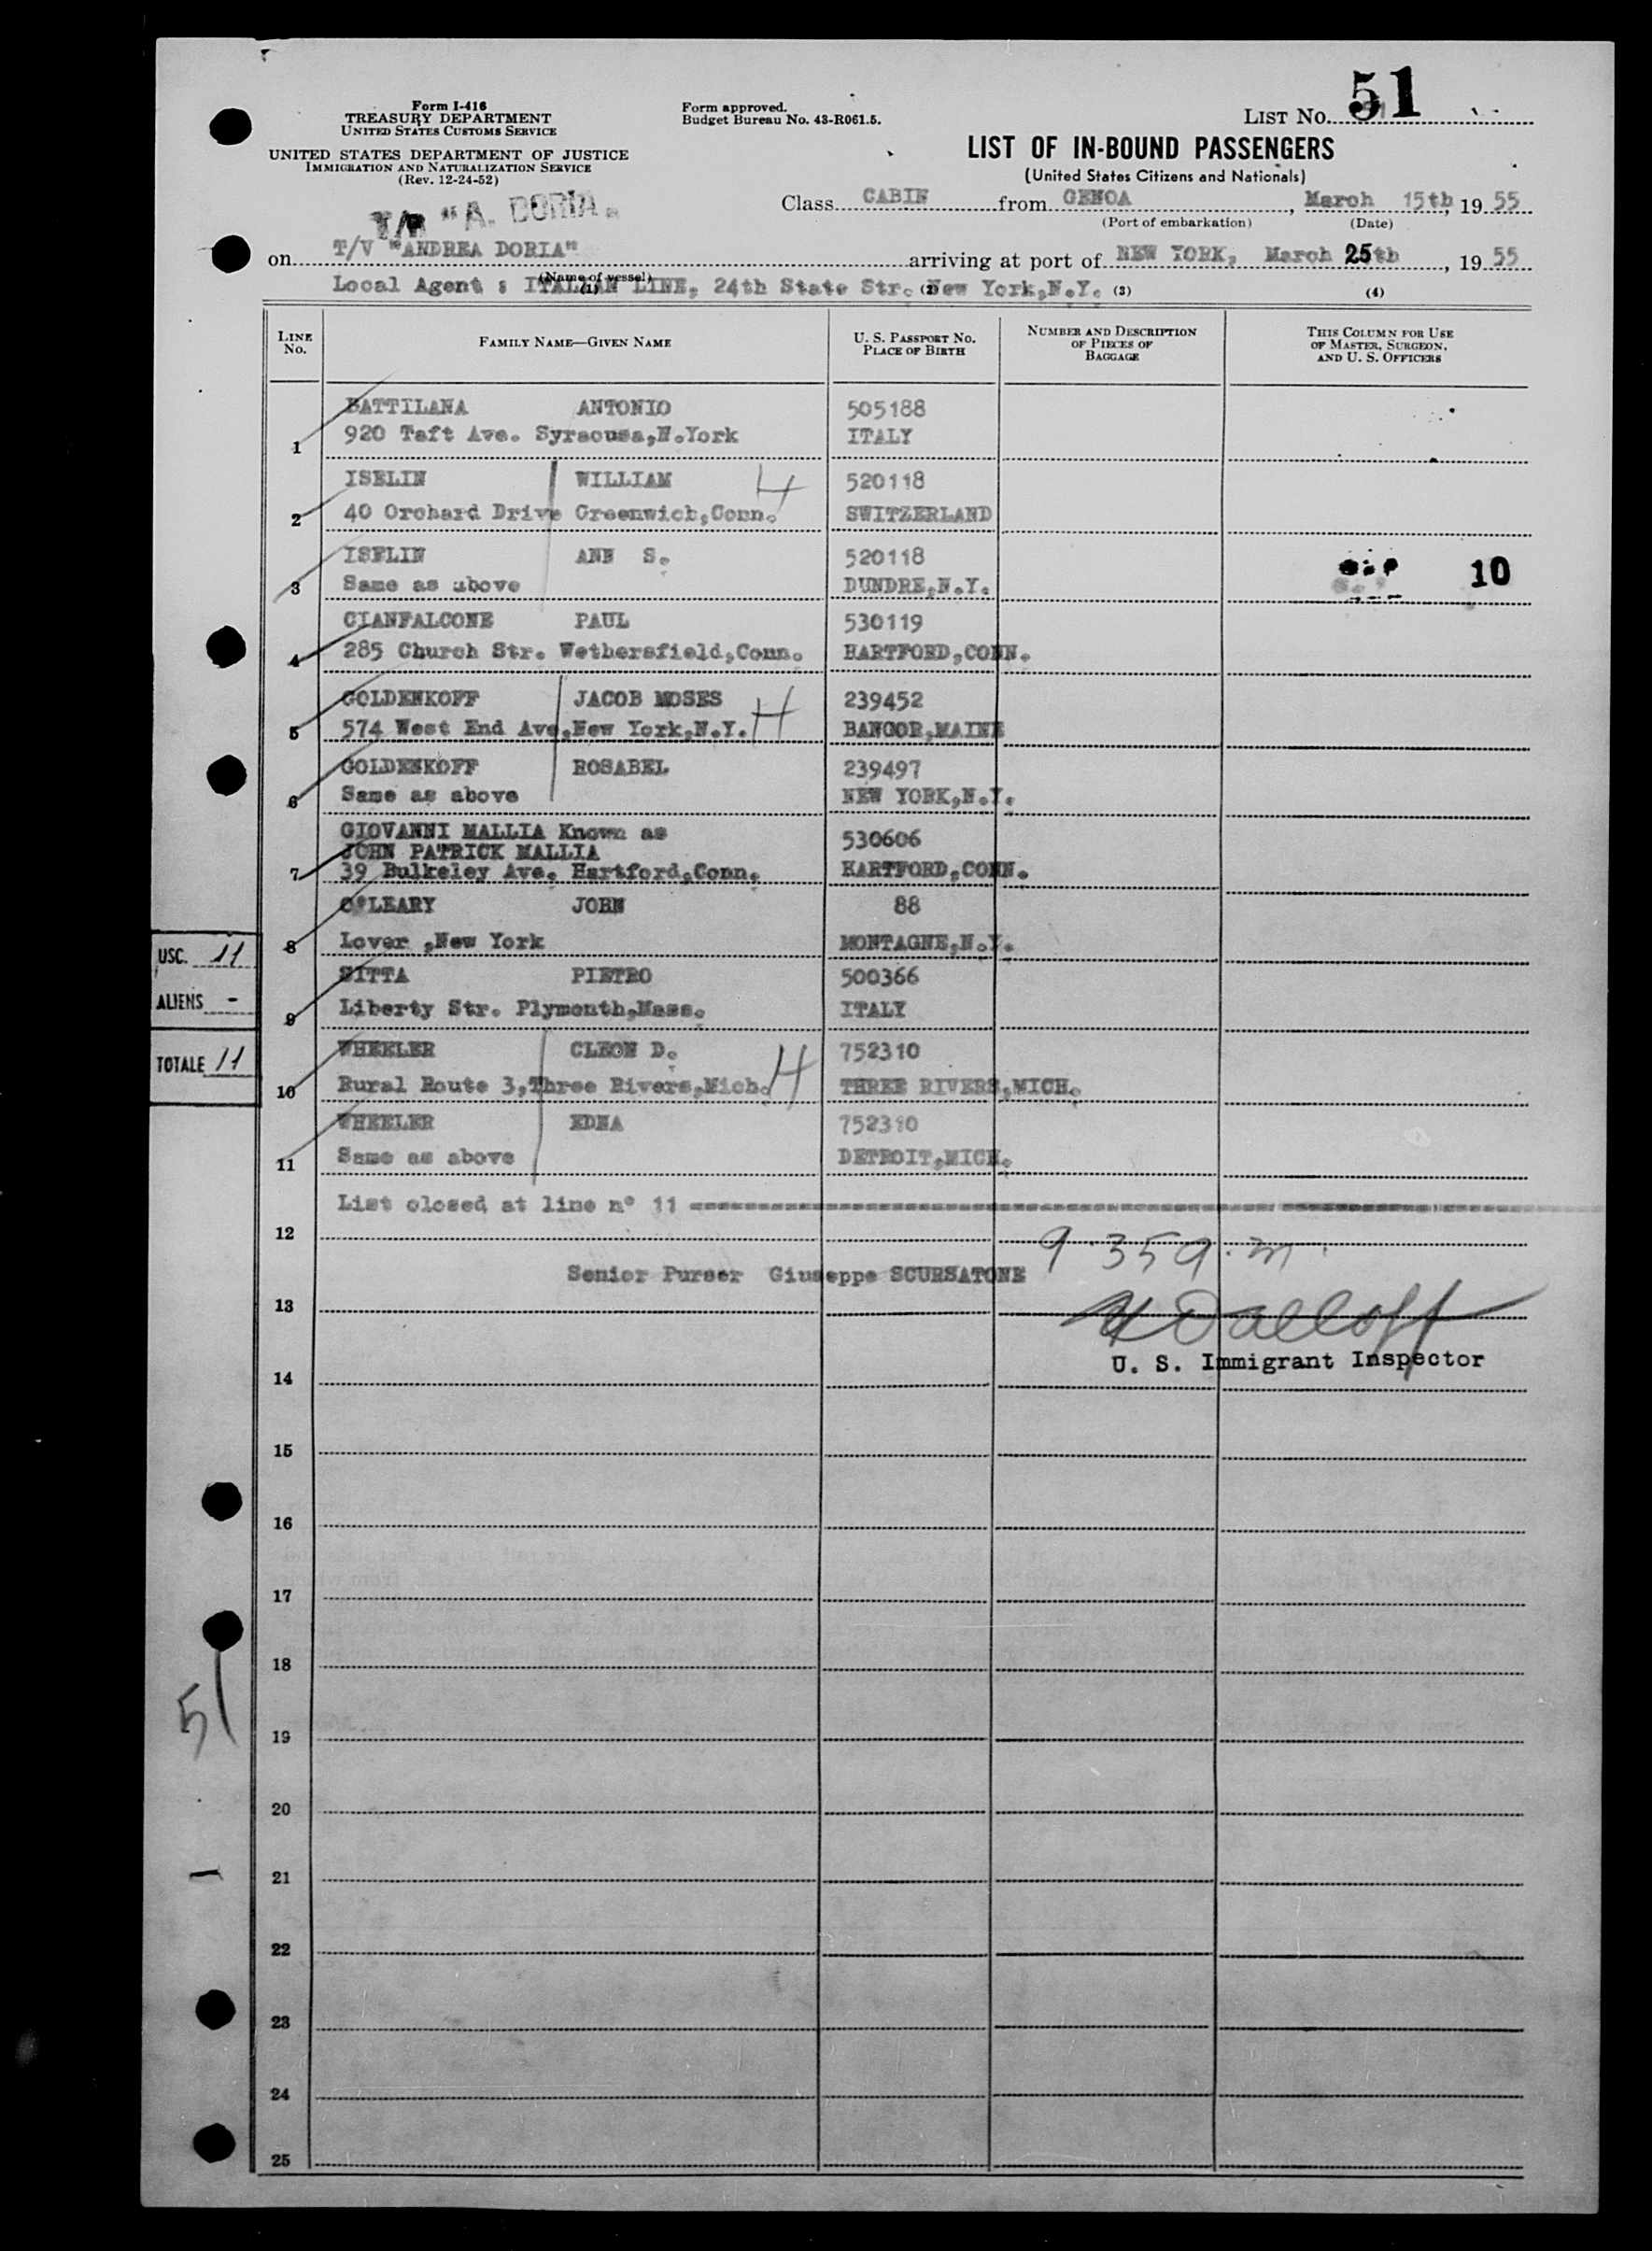 Form I-416
TREASURY DEPARTMENT
UNITED STATES CUSTOMS SERVICE
UNITED STATES DEPARTMENT OF JUSTICE
IMMIGRATION AND NATURALIZATION SERVICE
(Rev. 12-24-52)
Form approved.
Budget Bureau No. 43-R061.5.
LIST No. 51
LIST OF IN-BOUND PASSENGERS
(United States Citizens and Nationals)
"A. DORIA.
Class CABIN from GENOA, March 15th, 19 55
(Port of embarkation) (Date)
on T/V "ANDREA DORIA" arriving at port of NEW YORK, March 25th, 19 55
(Name of vessel)
Local Agent : ITALIAN LINE, 24th State Str. New York,N.Y.
(1) (2) (3) (4)
LINE No. FAMILY NAME—GIVEN NAME U. S. PASSPORT No. PLACE OF BIRTH NUMBER AND DESCRIPTION OF PIECES OF BAGGAGE THIS COLUMN FOR USE OF MASTER, SURGEON, AND U. S. OFFICERS
BATTILANA ANTONIO 505188
1 920 Taft Ave. Syracusa,N.York ITALY
ISELIN WILLIAM 4 520118
2 40 Orchard Drive Greenwich,Conn. SWITZERLAND
ISELIN ANN S. 520118
3 Same as above DUNDRE,N.Y. 10
CIANFALCONE PAUL 530119
4 285 Church Str. Wethersfield,Conn. HARTFORD,CONN.
GOLDENKOFF JACOB MOSES 4 239452
5 574 West End Ave.New York,N.Y. BANGOR,MAINE
GOLDENKOFF ROSABEL 239497
6 Same as above NEW YORK,N.Y.
GIOVANNI MALLIA Known as
JOHN PATRICK MALLIA 530606
7 39 Bulkeley Ave. Hartford,Conn. HARTFORD,CONN.
O'LEARY JOHN 88
8 Lover ,New York MONTAGNE,N.Y.
SITTA PIETRO 500366
9 Liberty Str. Plymonth,Mass. ITALY
WHEELER CLEON D. 4 752310
10 Rural Route 3,Three Rivers,Mich. THREE RIVERS,MICH.
WHEELER EDNA 752310
11 Same as above DETROIT,MICH.
USC. 11
ALIENS -
TOTALE 11
List closed at line n° 11
12
Senior Purser Giuseppe SCURSATONE
13
U. S. Immigrant Inspector
14
15
16
17
18
51
19
20
21
22
23
24
25